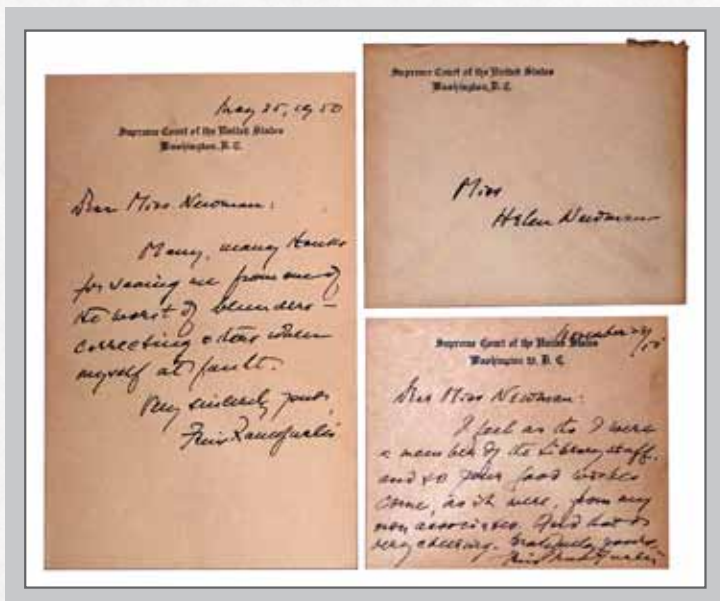 May 25, 1950
Supreme Court of the United States
Washington, D. C.
Dear Miss Newman:
Many, many thanks
for saving me from one of
the worst of blunders –
correcting others when
myself at fault.
Very sincerely yours,
Felix Frankfurter
Supreme Court of the United States
Washington, D. C.
Miss
Helen Newman
November
Supreme Court of the United States
Washington 13, D. C.
Dear Miss Newman:
I feel as tho I were
a member of the Library staff,
and so your good wishes
come, as it were, from my
own associates. And that is
very cheering. Gratefully yours,
Felix Frankfurter